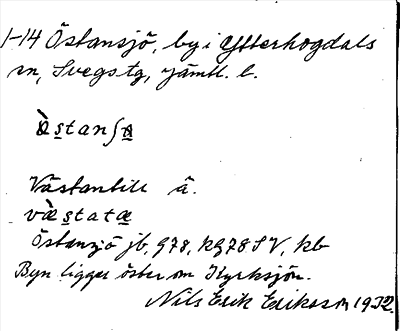 1-14 Östansjö, by i Ytterhogdals
sn, Svegs tg, Jämtl. l.
ὰstanʃa
Västantill å.
vὰstatæ
Östansjö jb, G78, kG78 SV, kb
Byn ligger öster om Kyrksjön.
Nils Erik Eriksson 1932.